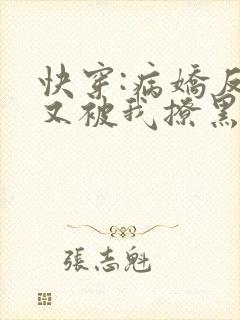 快穿:病嬌反
又被我撩黑
張志魁